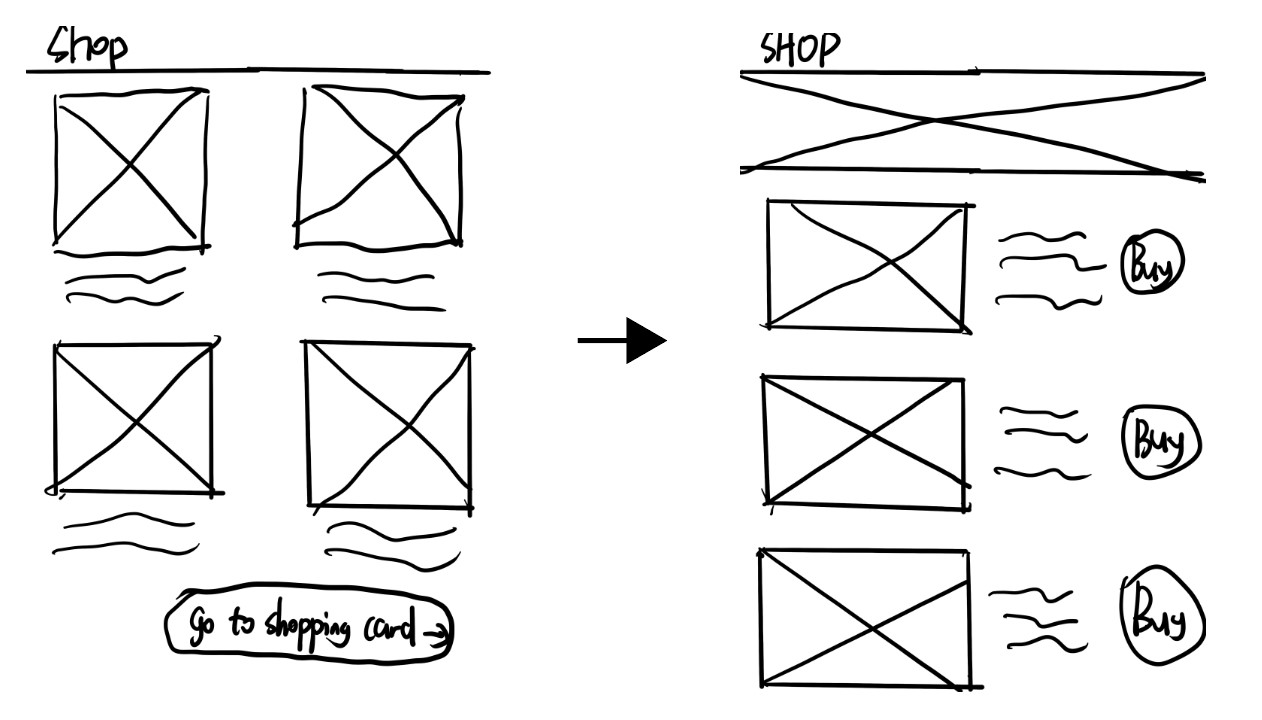 Shop
Go to shopping card →
SHOP
Buy
Buy
Buy